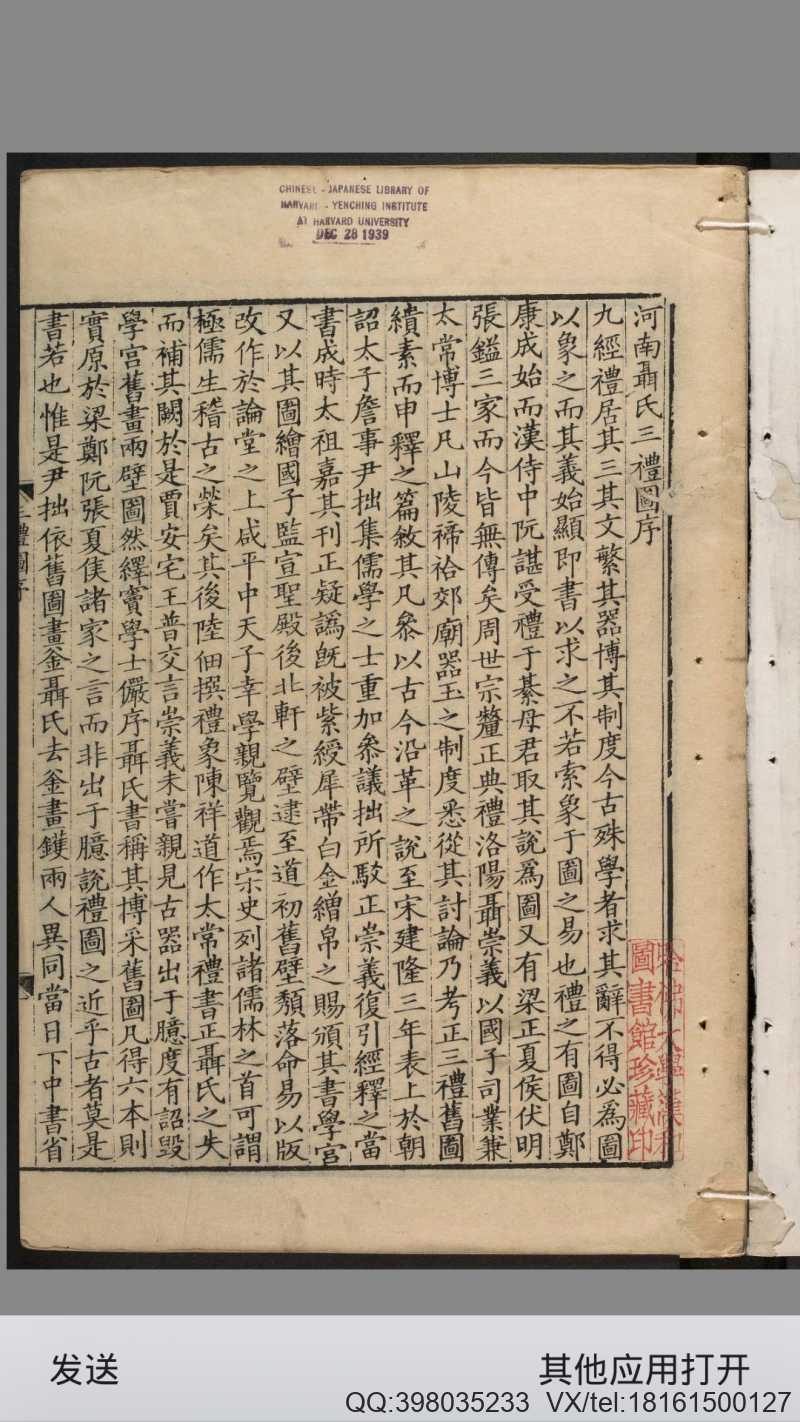 CHINESE - JAPANESE LIBRARY OF
HARVARD - YENCHING INSTITUTE
AT HARVARD UNIVERSITY
DEC 28 1939
河南聶氏三禮圖序
九經禮居其三其文繁其器博其制度今古殊學者求其辭不得必為圖
以象之而其義始顯即書以求之不若索象于圖之易也禮之有圖自鄭
康成始而漢侍中阮諶受禮于綦母君取其說爲圖又有梁正夏侯伏明
張鎰三家而今皆無傳矣周世宗釐正典禮洛陽聶崇義以國子司業兼
太常博士凡山陵禘祫郊廟器玉之制度悉從其討論乃考正三禮舊圖
繢素而申釋之篇敘其凡叅以古今沿革之說至宋建隆三年表上於朝
詔太子詹事尹拙集儒學之士重加叅議拙所駁正崇義復引經釋之當
書成時太祖嘉其刊正疑譌旣被紫綬犀帶白金繒帛之賜頒其書學官
又以其圖繪國子監宣聖殿後北軒之壁逮至道初舊壁頹落命易以版
改作於論堂之上咸平中天子幸學親覽觀焉宋史列諸儒林之首可謂
極儒生稽古之榮矣其後陸佃撰禮象陳祥道作太常禮書正聶氏之失
而補其闕於是賈安宅王普交言崇義未嘗親見古器出于臆度有詔毀
學宮舊畫兩壁圖然繹竇學士儼序聶氏書稱其博采舊圖凡得六本則
實原於梁鄭阮張夏侯諸家之言而非出于臆說禮圖之近乎古者莫是
書若也惟是尹拙依舊圖畫釜聶氏去釜畫鑊兩人異同當日下中書省
三禮圖序
哈佛大學漢和
圖書館珍藏印
发送
其他应用打开
QQ:398035233 VX/tel:18161500127